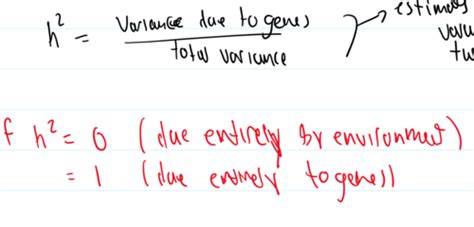 h² = variance due to genes / total variance
estimates
f h² = 0 (due entirely by environment)
= 1 (due entirely to genes)